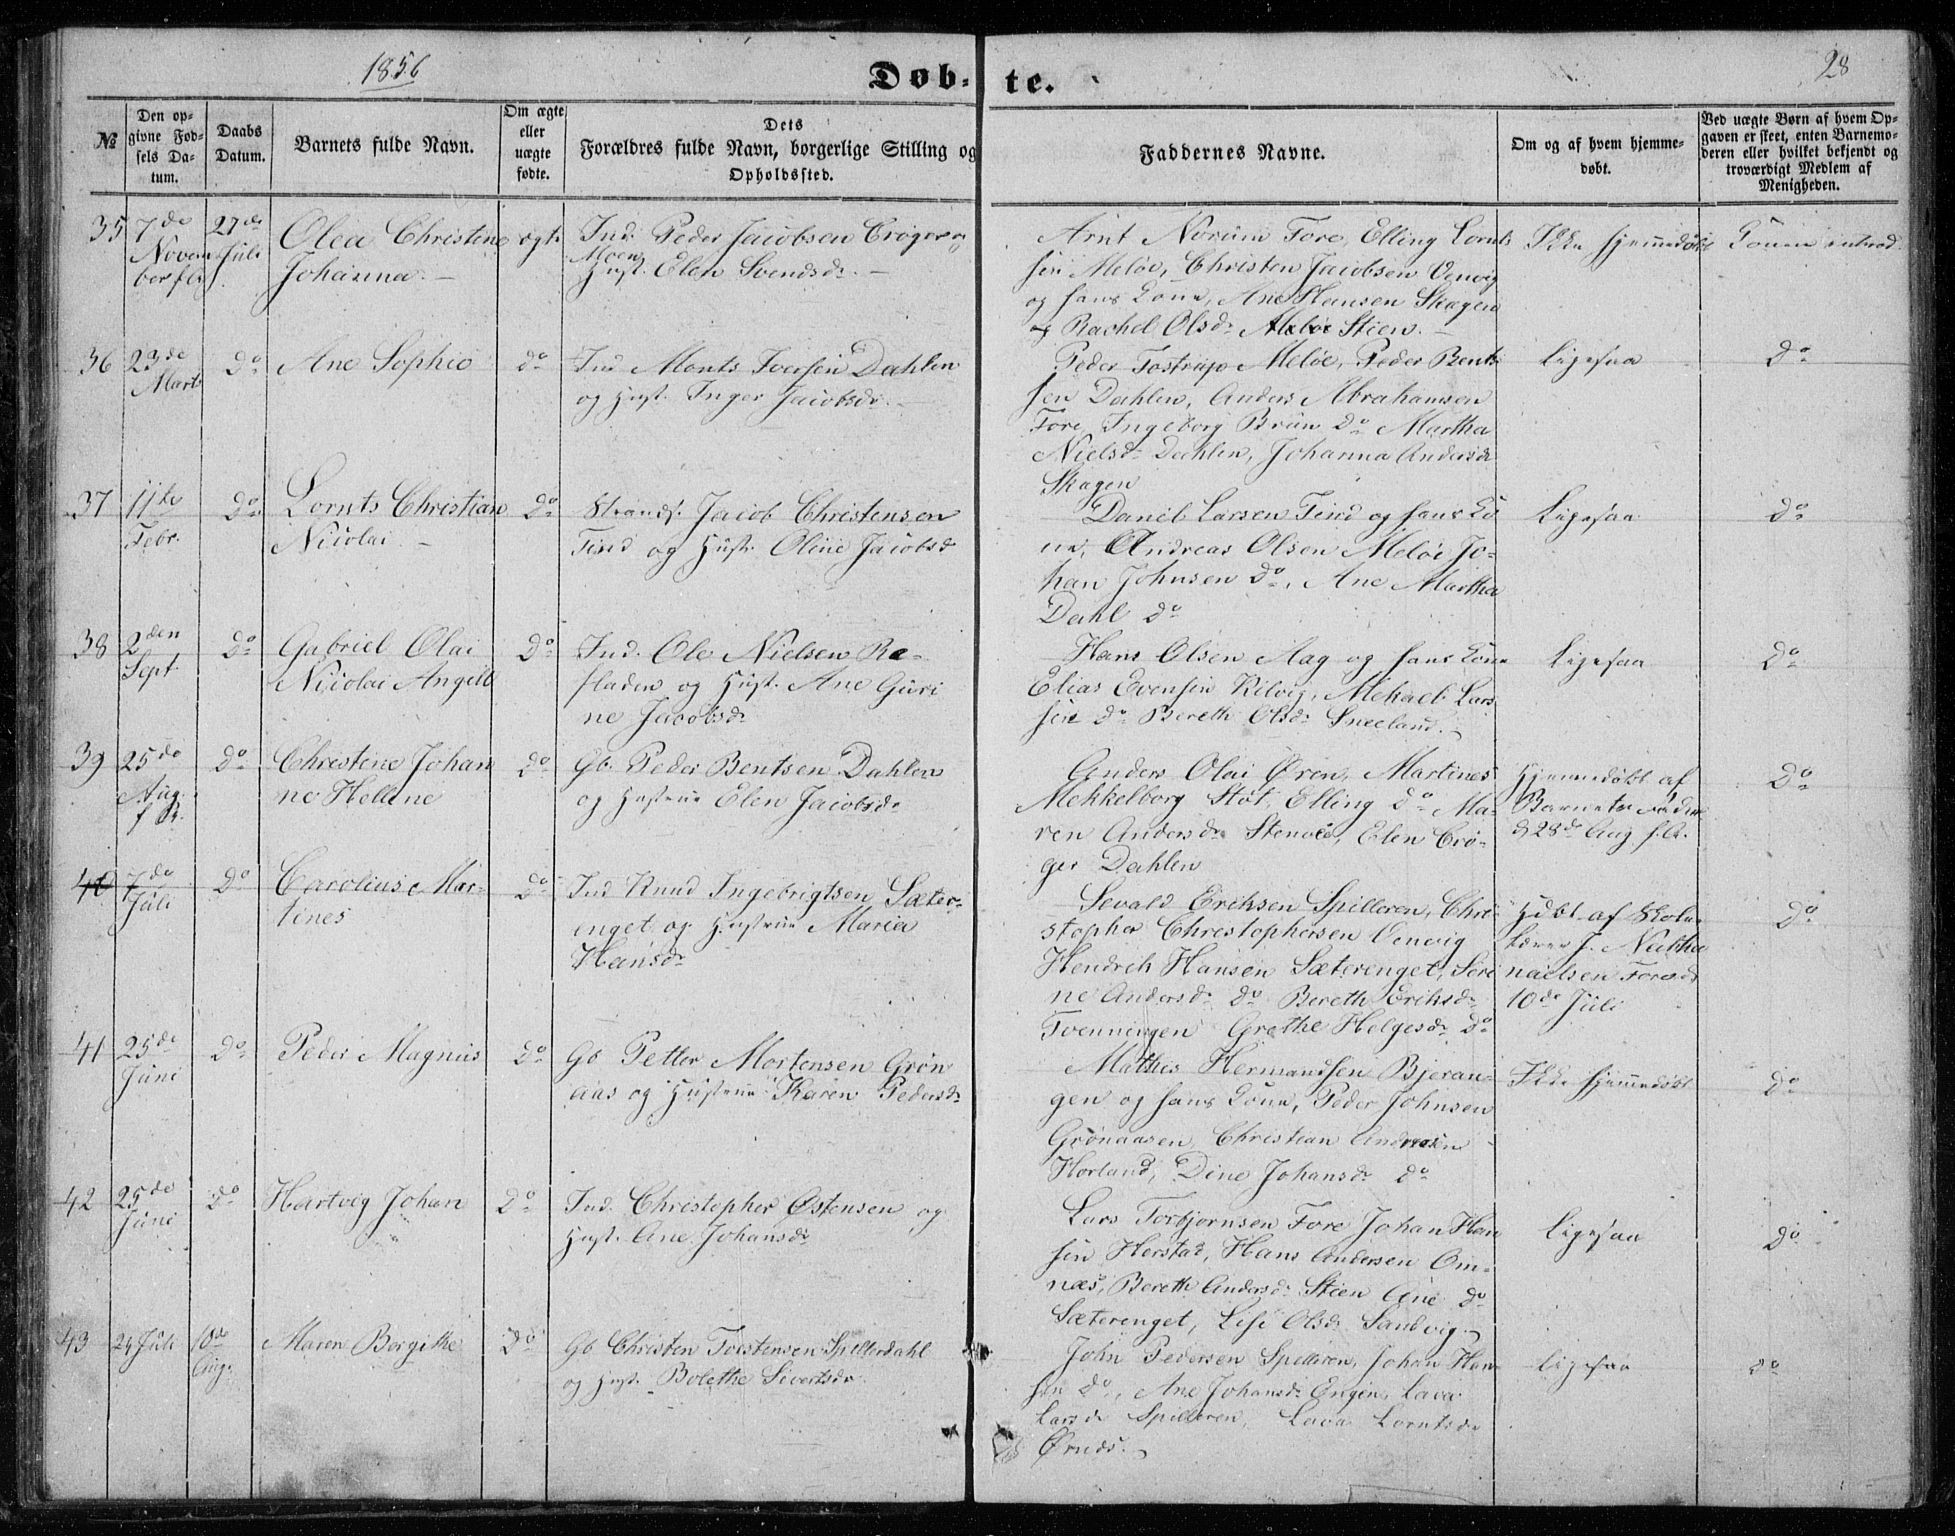 1856
Døb-
te.
28
№
Den op-
givne Fød-
sels Da-
tum.
Daabs
Datum.
Barnets fulde Navn.
Om ægte
eller
uægte
fødte.
Dets
Forældres fulde Navn, borgerlige Stilling og
Opholdssted.
Faddernes Navne.
Om og af hvem hjemme-
døbt.
Ved uægte Børn af hvem Op-
gaven er skeet, enten Barnemo-
deren eller hvilket bekjendt og
troværdigt Medlem af
Menigheden.
35 7de
Novem
ber
27de
Juli
Olea Christine
Johanna.
ægte
Ind. Peder Jacobsen Crøger
Moen
Hust. Elen Svendsdr.
Arnt Norum Fore, Elling Lornt-
sen Meløe, Christen Jacobsen Venvig
og hans Kone, Ane Hansen Skagen
og Rachel Olsdr Meløe Stien.
Ikke hjemmedøbt
Konen introd.
36 23de
Marts
do
Ane Sophie
do
Ind Monts Iversen Dahlen
og Hust. Inger Jacobsdr.
Peder Tostrup Meløe, Peder Bent-
sen Dahlen, Anders Abrahamsen
Fore, Ingeborg Bruun do Martha
Nielsdr Dahlen, Johanna Andersdr
Skagen
Ligesaa
do
37 11te
Febr.
do
Lornts Christian
Nicolai
do
Strands. Jacob Christensen
Tind og Hustr. Oline Jacobsd
Daniel Larsen Tind og hans Ko
ne, Andreas Olsen Meløe Jo-
han Johnsen do, Ane Martha
Dahl do
Ligesaa
do
38 2den
Sept
do
Gabriel Olai
Nicolai Angell
do
Ind. Ole Nielsen Re-
fladen og Hust. Ane Guri
ne Jacobsdr
Hans Olsen Aag og hans Kone
Elias Evensen Kilvig, Michael Lar-
sen do Bereth Olsdr Sneeland.
Ligesaa
do
39 25de
Aug.
f. A.
do
Christine Johan
ne Hellene
do
Gb. Peder Bentsen Dahlen
og Hustrue Elen Jacobsdr
Anders Olai Øren, Martines
Mekkelborg Støt, Elling do Ma-
ren Andersdr Stenvee, Elen Crø-
ger Dahlen
Hjemmedøbt af
Barnets Fader
d 28de Aug f. A.
do
40 7de
Juli
do
Carolius Mar-
tines
do
Ind Knud Ingebrigtsen Sæter-
enget og Hustrue Maria
Hansdr
Sevald Eriksen Spilleren, Chri-
stopher Christophersen Venvig
Hendrik Hansen Sæterenget, Seri
ne Andersdr do Bereth Eriksdr
Tvenningen Grethe Helgesdr do
Hdbt af Skole-
lærer J. Natha
naelsen Fore d
10de Juli
do
41 25de
Juni
do
Peder Magnus
do
Gb Petter Mortensen Grøn
aas og Hustrue Karen Pedersdr
Mathis Hermandsen Bjeran-
gen og hans Kone, Peder Johnsen
Grønaasen, Christian Andersen
Horland, Dine Johansdr do
Ikke hjemmedøbt
do
42 25de
Juni
do
Hartvig Johan
do
Ind. Christopher Østensen og
Hust. Ane Johansdr
Lars Torbjornsen Fore Johan Han
sen Herstad, Hans Andersen Om-
næs, Bereth Andersdr Stien Ane do
Sæterenget, Lisi Olsdr Sandvig.
Ligesaa
do
43 24 Juli
10de
Aug.
Maren Bergithe
do
Gb Christen Torstensen Spillerdahl
og Hust. Bolethe Sivertsdr
John Pedersen Spilleren, Johan Han-
sen do, Ane Johansdr Engen, Lava
Larsdr Spilleren, Lava Lorntsdr
Ørnes.
Ligesaa
do